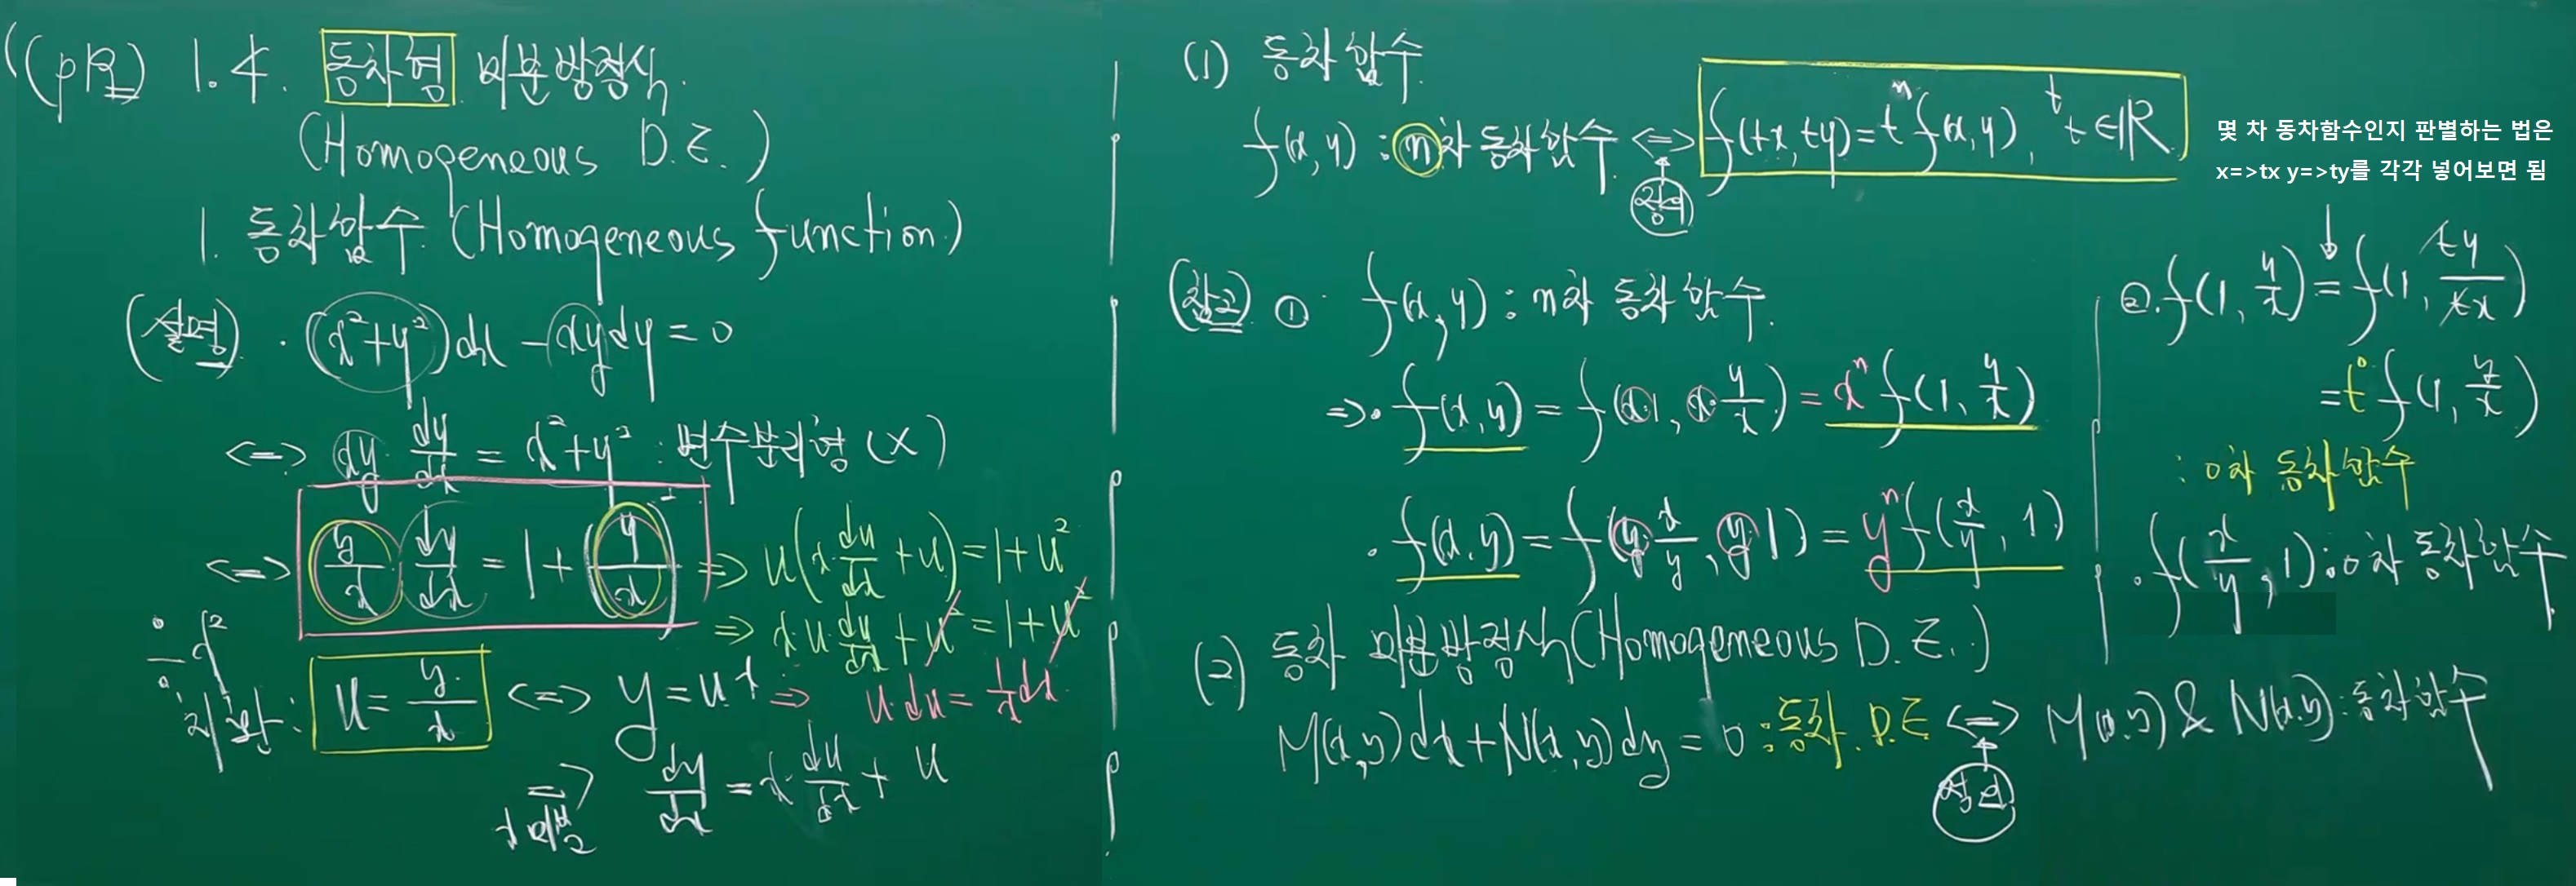 1.4. 동차형 미분방정식.
(Homogeneous D.E.)
1. 동차함수. (Homogeneous function)
(설명) · (x²+y²)dx − xydy = 0
<=> xy dy/dx = x²+y² : 변수분리형 (X)
<=> y/x dy/dx = 1 + (y/x)² => u(x·du/dx + u) = 1 + u²
÷x² => x·u·du/dx + u² = 1 + u²
치환: u = y/x <=> y = ux => u·du = 1/x dx
=> x미분 dy/dx = x·du/dx + u
(1) 동차함수.
f(x,y) : n차 동차함수 <=> f(tx,ty) = tⁿf(x,y), ᵗt∈ℝ
정의
몇 차 동차함수인지 판별하는 법은
x=>tx y=>ty를 각각 넣어보면 됨
(참고) ① f(x,y) : n차 동차함수.
=> · f(x,y) = f(x·1, x·y/x) = xⁿf(1, y/x)
· f(x,y) = f(y·x/y, y·1) = yⁿf(x/y, 1)
②. f(1, y/x) = f(1, ty/tx)
= t⁰f(1, y/x)
: 0차 동차함수
· f(x/y, 1) : 0차 동차함수
(2) 동차 미분방정식 (Homogeneous D.E.)
M(x,y)dx + N(x,y)dy = 0 : 동차. D.E <=> M(x,y) & N(x,y) : 동차함수
정의